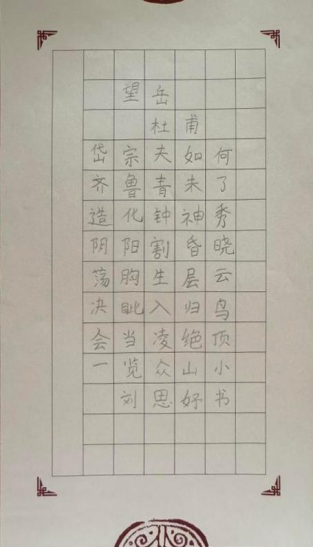 望岳
杜甫
岱宗夫如何
齐鲁青未了
造化钟神秀
阴阳割昏晓
荡胸生层云
决眦入归鸟
会当凌绝顶
一览众山小
刘思妤书